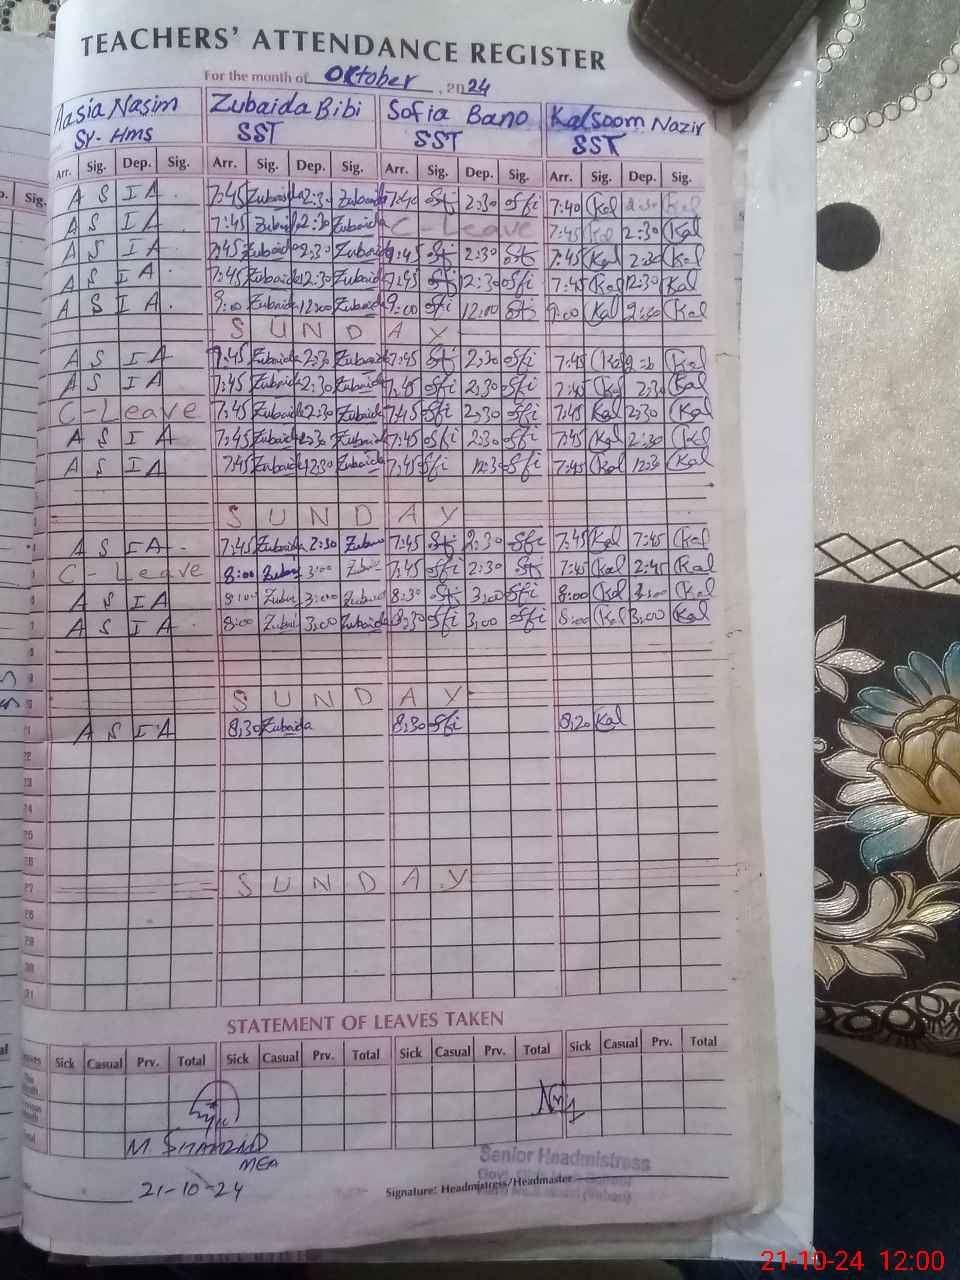 TEACHERS' ATTENDANCE REGISTER
For the month of October, 2024
Aasia Nasim Zubaida Bibi Sofia Bano Kalsoom Nazir
Sr. Hms SST SST SST
Arr. Sig. Dep. Sig. Arr. Sig. Dep. Sig. Arr. Sig. Dep. Sig. Arr. Sig. Dep. Sig.
A S I A 7:45 Zubaida 2:30 Zubaida 7:40 2:30 Sfi 7:40 Kal 2:30 Kal
A S I A 7:45 Zubaida 2:30 Zubaida C-Leave 7:45 Kal 2:30 Kal
A S I A 7:45 Zubaida 2:30 Zubaida 7:45 2:30 7:45 Kal 2:30 Kal
A S I A 7:45 Zubaida 12:30 Zubaida 7:45 12:30 Sfi 7:45 Kal 12:30 Kal
A S I A 9:00 Zubaida 12:00 Zubaida 9:00 Sfi 12:00 9:00 Kal Kal
S U N D A Y
A S I A 7:45 Zubaida 2:30 Zubaida 7:45 2:30 Sfi 7:45 Kal Kal
A S I A 7:45 Zubaida 2:30 Zubaida 7:45 Sfi 2:30 Sfi 7:45 Kal 2:30 Kal
C-Leave 7:45 Zubaida 2:30 Zubaida 7:45 Sfi 2:30 Sfi 7:45 Kal 2:30 Kal
A S I A 7:45 Zubaida 2:30 Zubaida 7:45 Sfi 2:30 Sfi 7:45 Kal 2:30 Kal
A S I A 7:45 Zubaida 12:30 Zubaida 7:45 Sfi 12:30 Sfi 7:45 Kal 12:30 Kal
S U N D A Y
A S I A 7:45 Zubaida 2:30 Zubaida 7:45 2:30 Sfi 7:45 Kal 7:45 Kal
C-Leave 8:00 3:00 7:45 Sfi 2:30 7:45 Kal 2:45 Kal
A S I A 3:00 8:30 3:00 Sfi 8:00 Kal 3:00 Kal
A S I A 8:00 3:00 Zubaida 8:30 Sfi 3:00 Sfi 8:00 Kal 3:00 Kal
S U N D A Y
A S I A 8:30 Zubaida 8:30 Sfi 8:20 Kal
22
23
24
25
26
27 S U N D A Y
28
29
30
31
STATEMENT OF LEAVES TAKEN
Sick Casual Prv. Total Sick Casual Prv. Total Sick Casual Prv. Total Sick Casual Prv. Total
M. SHAHZAD
MEA
21-10-24
Senior Headmistress
Signature: Headmistress/Headmaster
21-10-24 12:00